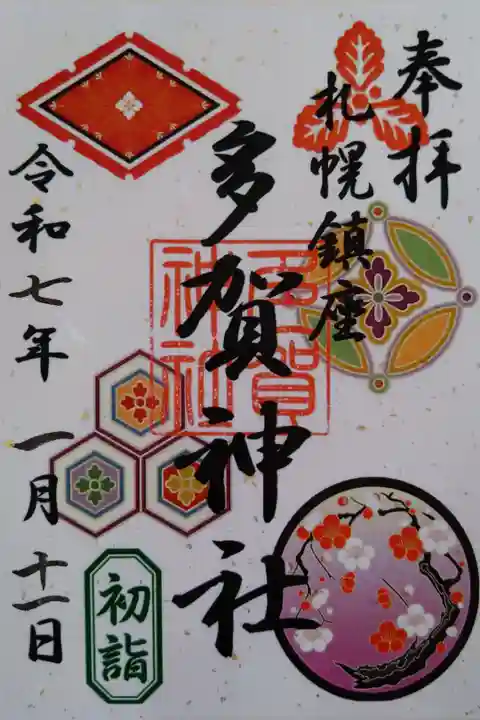 奉拝
札幌鎮座
多賀神社
多賀
神社
令和七年 一月 十一日
初詣